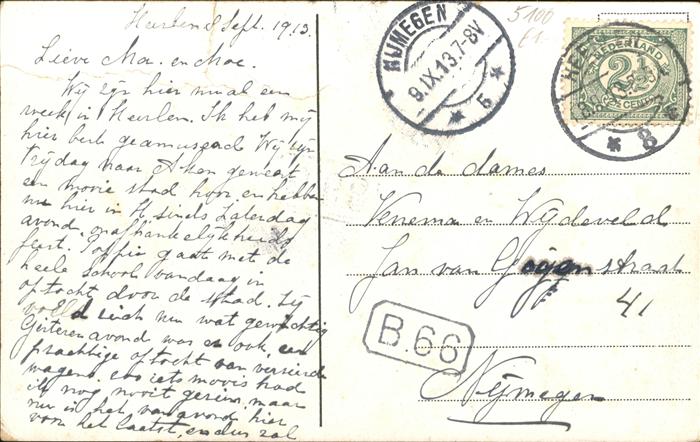 Heerlen 8 Sept. 1913.
Lieve Moe. en Moe.
Wij zijn hier nu al een
week in Heerlen. Ik heb mij
hier best geamuseerd. Wij zijn
Vrijdag naar Aken geweest
een mooie stad hoor, en hebben
nu hier in H. sinds Zaterdag
avond onafhankelijkheids
feest. gaat met de
heele school vandaag in
optocht door de stad. Zij
voelt zich nu wat gewichtig
Gisteren avond was er ook een
prachtige optocht van versierde
wagens. zoo iets moois had
ik nog nooit gezien, maar
nu is het van avond hier
voor het laatst, en dus zal
NIJMEGEN
9.IX.13.7-8V
* 5 *
5100
NEDERLAND
2½
2½ CENT
HEER
* 8
Aan de dames
Venema en Wijdeveld
Jan van Goyen straat
41
B.66
Nijmegen